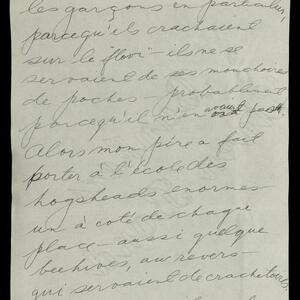 les garçons en particulier,
parcequ'ils crachaient
sur le "flovi" – ils ne se
servaient de ses mouchoires
de poches probablement
parcequ'il n'en avait pas.
Alors mon père a fait
porter à l'école des
hogsheads enormes –
un à coté de chaque
place – aussi quelque
beehives, au revers –
qui servaient de crachetoires,